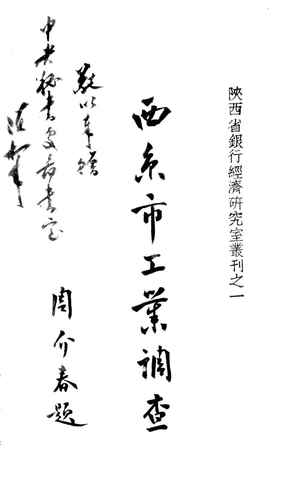 陝西省銀行經濟研究室叢刊之一
西京市工業調查
周介春題
敬以奉贈
中央秘書處圖書室